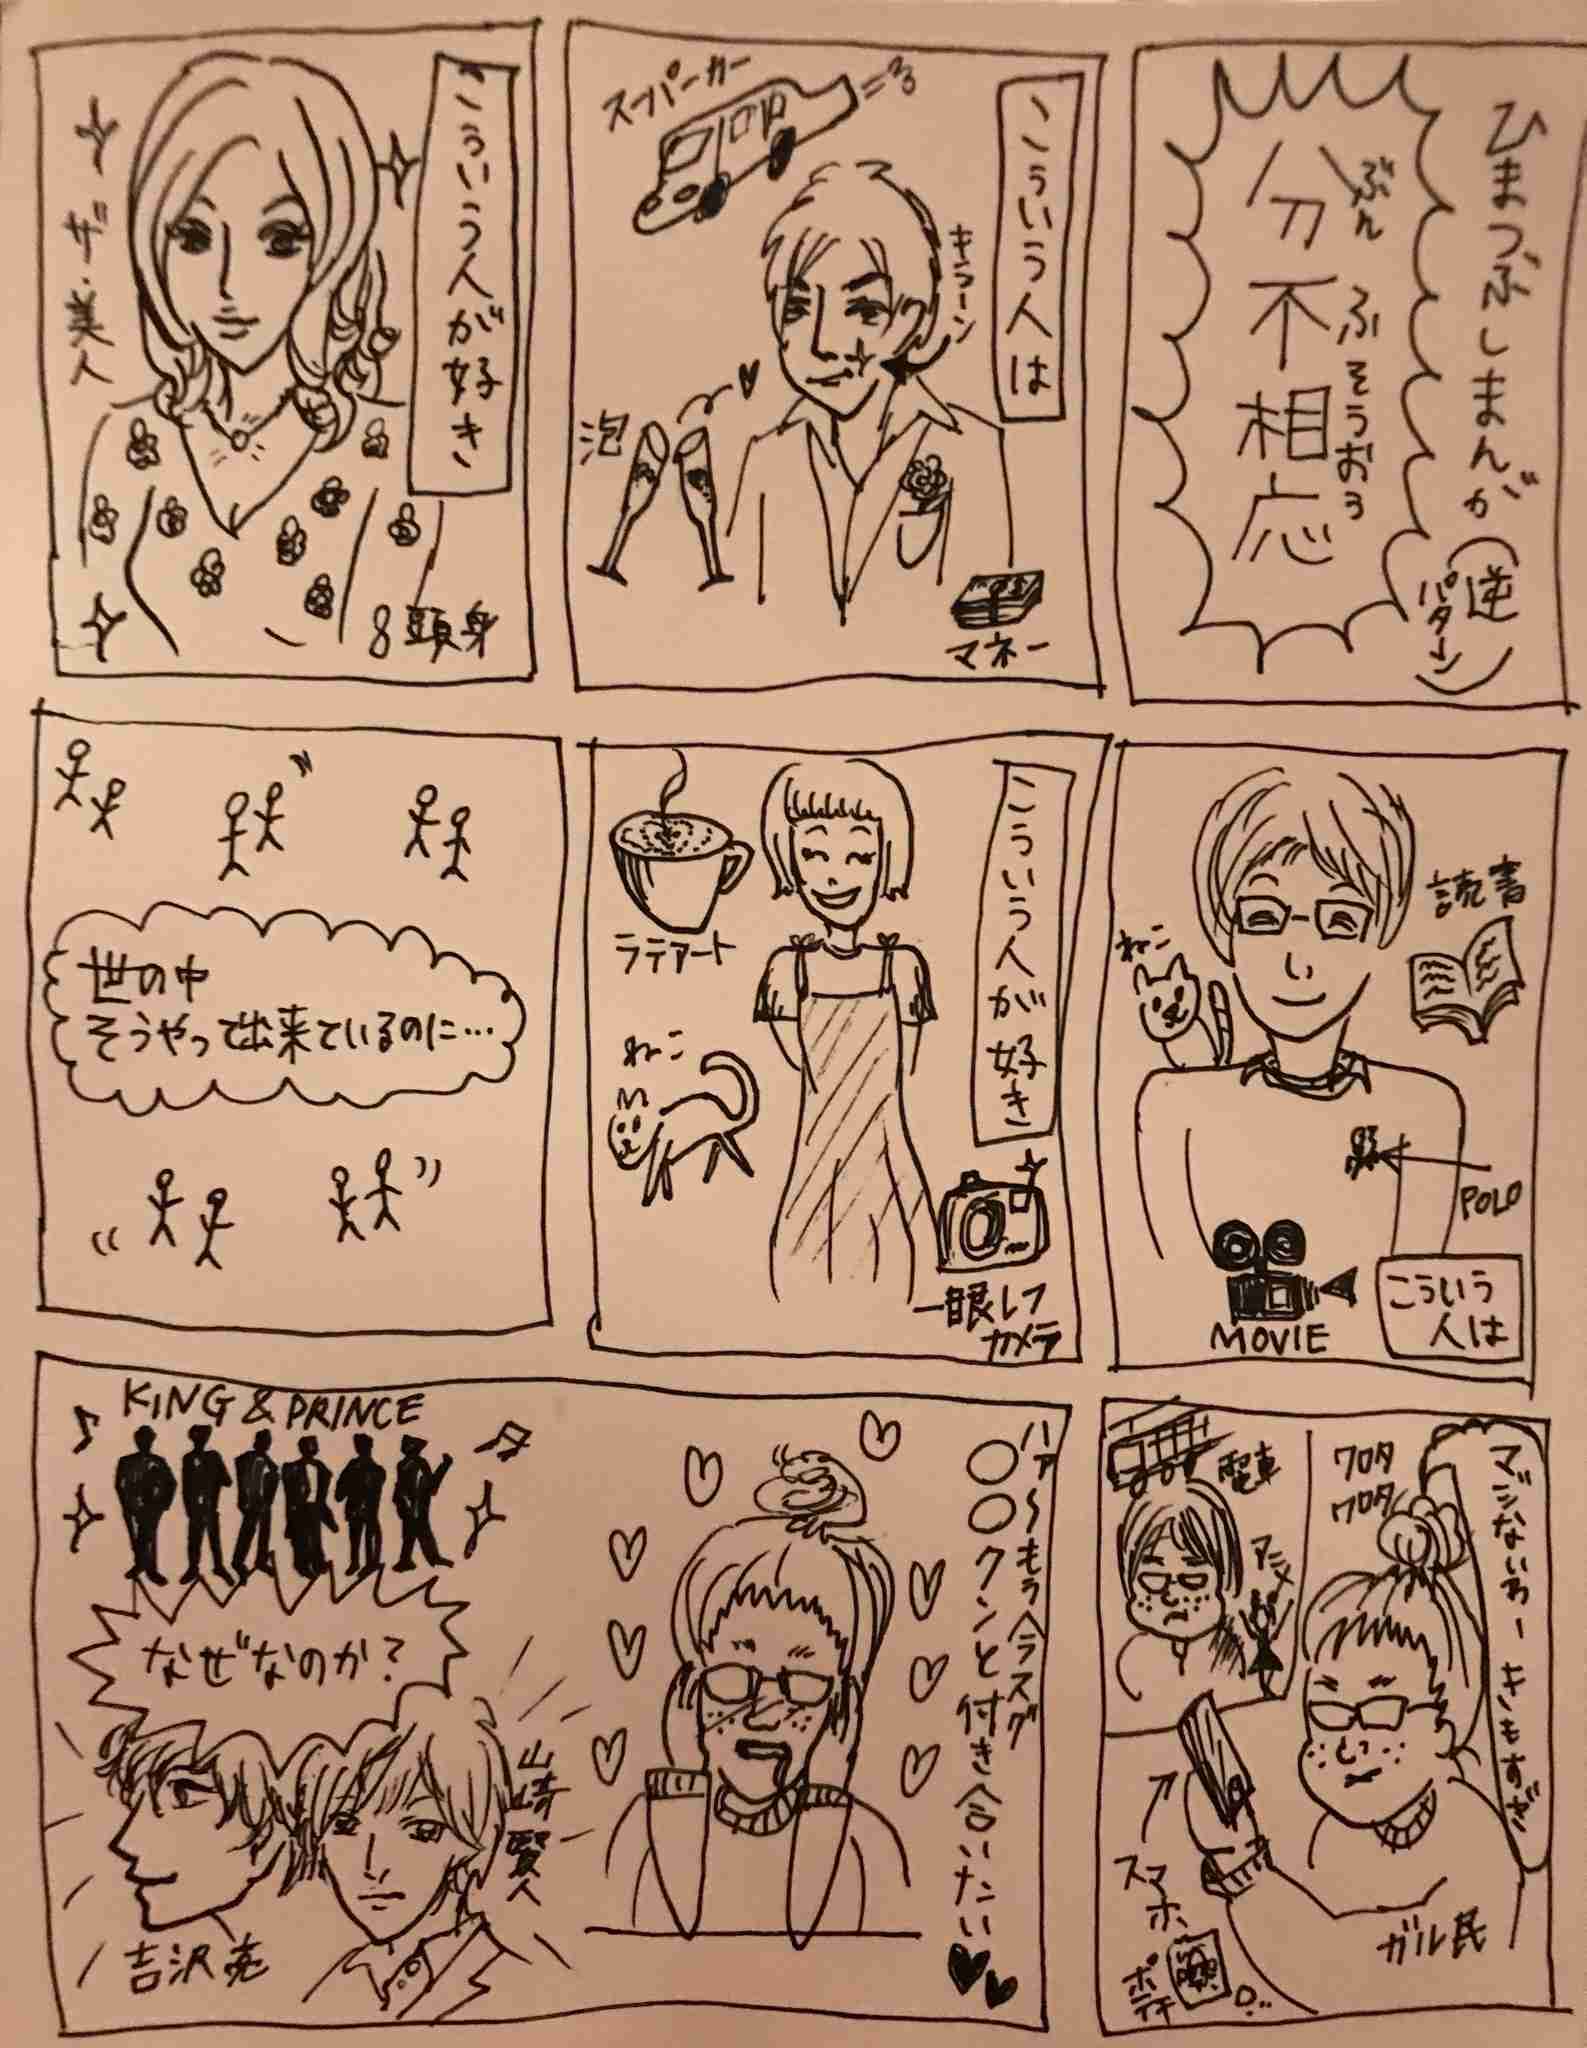 ひまつぶしまんが
(逆パターン)
ぶん ふそうおう
分不相応
こういう人は
スーパーカー
キラーン
泡
マネー
こういう人が好き
ザ・美人
8頭身
読書
ねこ
POLO
MOVIE
こういう人は
こういう人が好き
ラテアート
ねこ
一眼レフ
カメラ
世の中
そうやって出来ているのに…
マジないわー きもすぎ
ワロタ
ワロタ
電車
アニメ
スマホ
ポテチ
ガル民
ハァ〜もう今スグ
〇〇クンと付き合いたい
KING & PRINCE
なぜなのか?
山崎賢人
吉沢亮